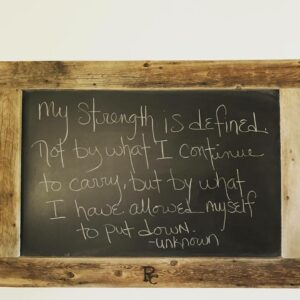 My Strength is defined.
Not by what I continue
to carry, but by what
I have allowed myself
to put down.
-unknown